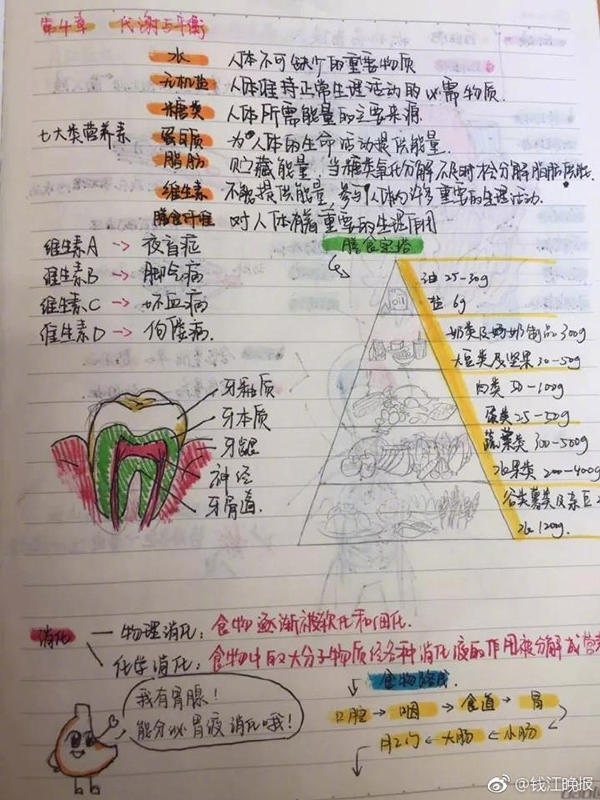 第4章 代谢与平衡
水 人体不可缺少的重要物质
无机盐 人体维持正常生理活动的必需物质.
糖类 人体所需能量的主要来源
七大类营养素 蛋白质 为人体的生命活动提供能量.
脂肪 贮藏能量,当糖类氧化分解不足时才会分解脂肪供能.
维生素 不能提供能量,参与人体的许多重要的生理活动.
膳食纤维 对人体有着重要的生理作用
膳食宝塔
维生素A → 夜盲症
维生素B → 脚气病
维生素C → 坏血病
维生素D → 佝偻病.
油 25-30g
盐 6g
奶类及奶制品 300g
大豆类及坚果 30-50g
肉类 50-100g
蛋类 25-50g
蔬菜类 300-500g
水果类 200-400g
谷类薯类及杂豆
水 1200g.
牙釉质
牙本质
牙龈
神经
牙骨道.
消化
物理消化: 食物逐渐被软化和细化.
化学消化: 食物中的大分子物质经各种消化液的作用被分解成营养
食物路线
口腔 → 咽 → 食道 → 胃
肛门 ← 大肠 ← 小肠
我有胃腺!
能分泌胃液消化哦!
@钱江晚报